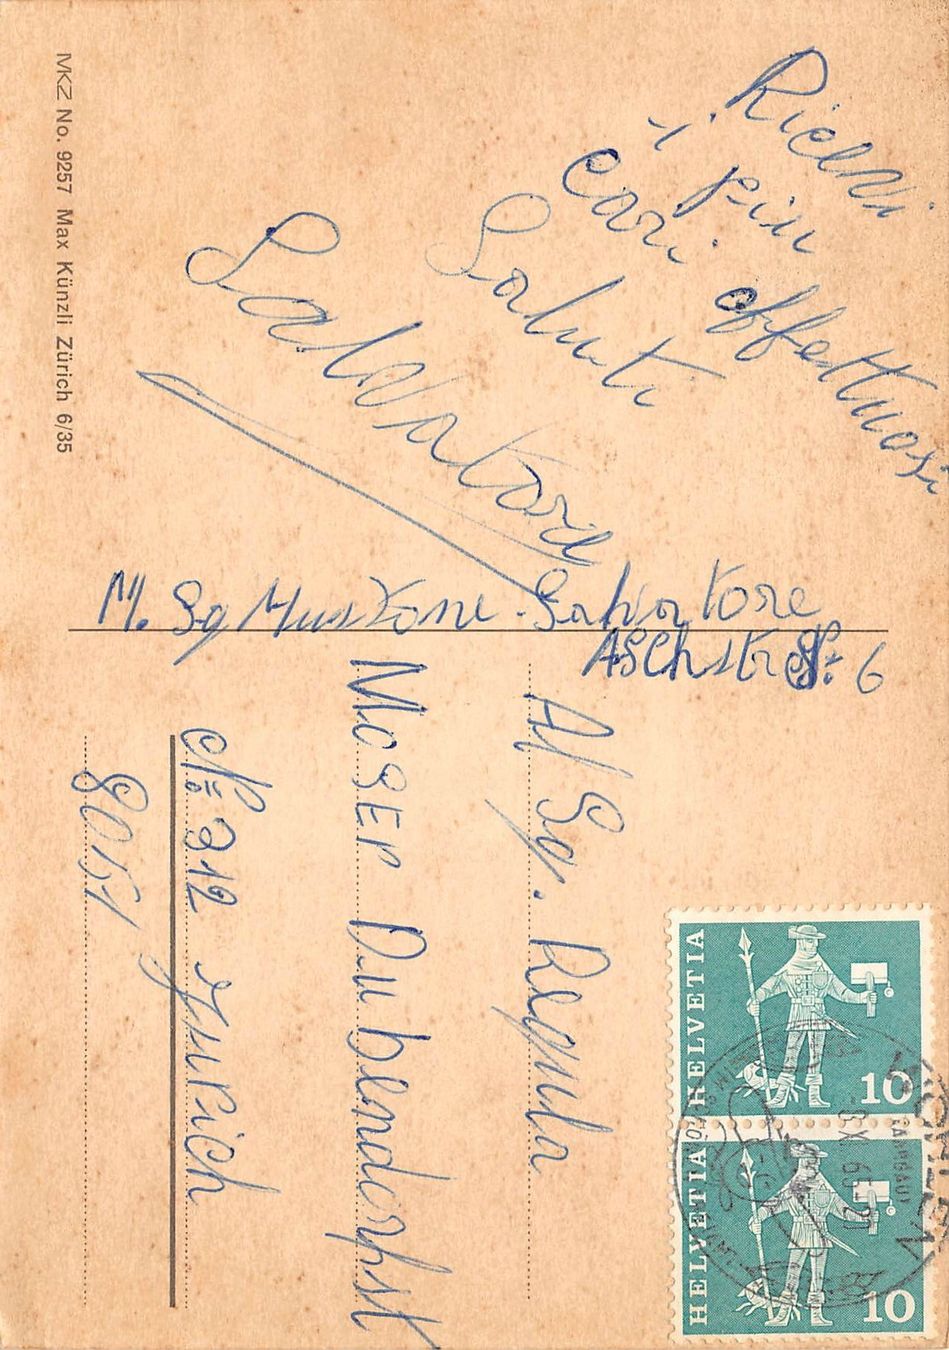 Ricevi
i più
cari affettuosi
Saluti
Salvatore
M. Sg Mustone Salvatore
ASChstr N: 6
Al Sg. Regula
Moser Dubendorfst
N: 312 Zurich
8051
MKZ No. 9257 Max Künzli Zürich 6/35
HELVETIA
10
HELVETIA
10